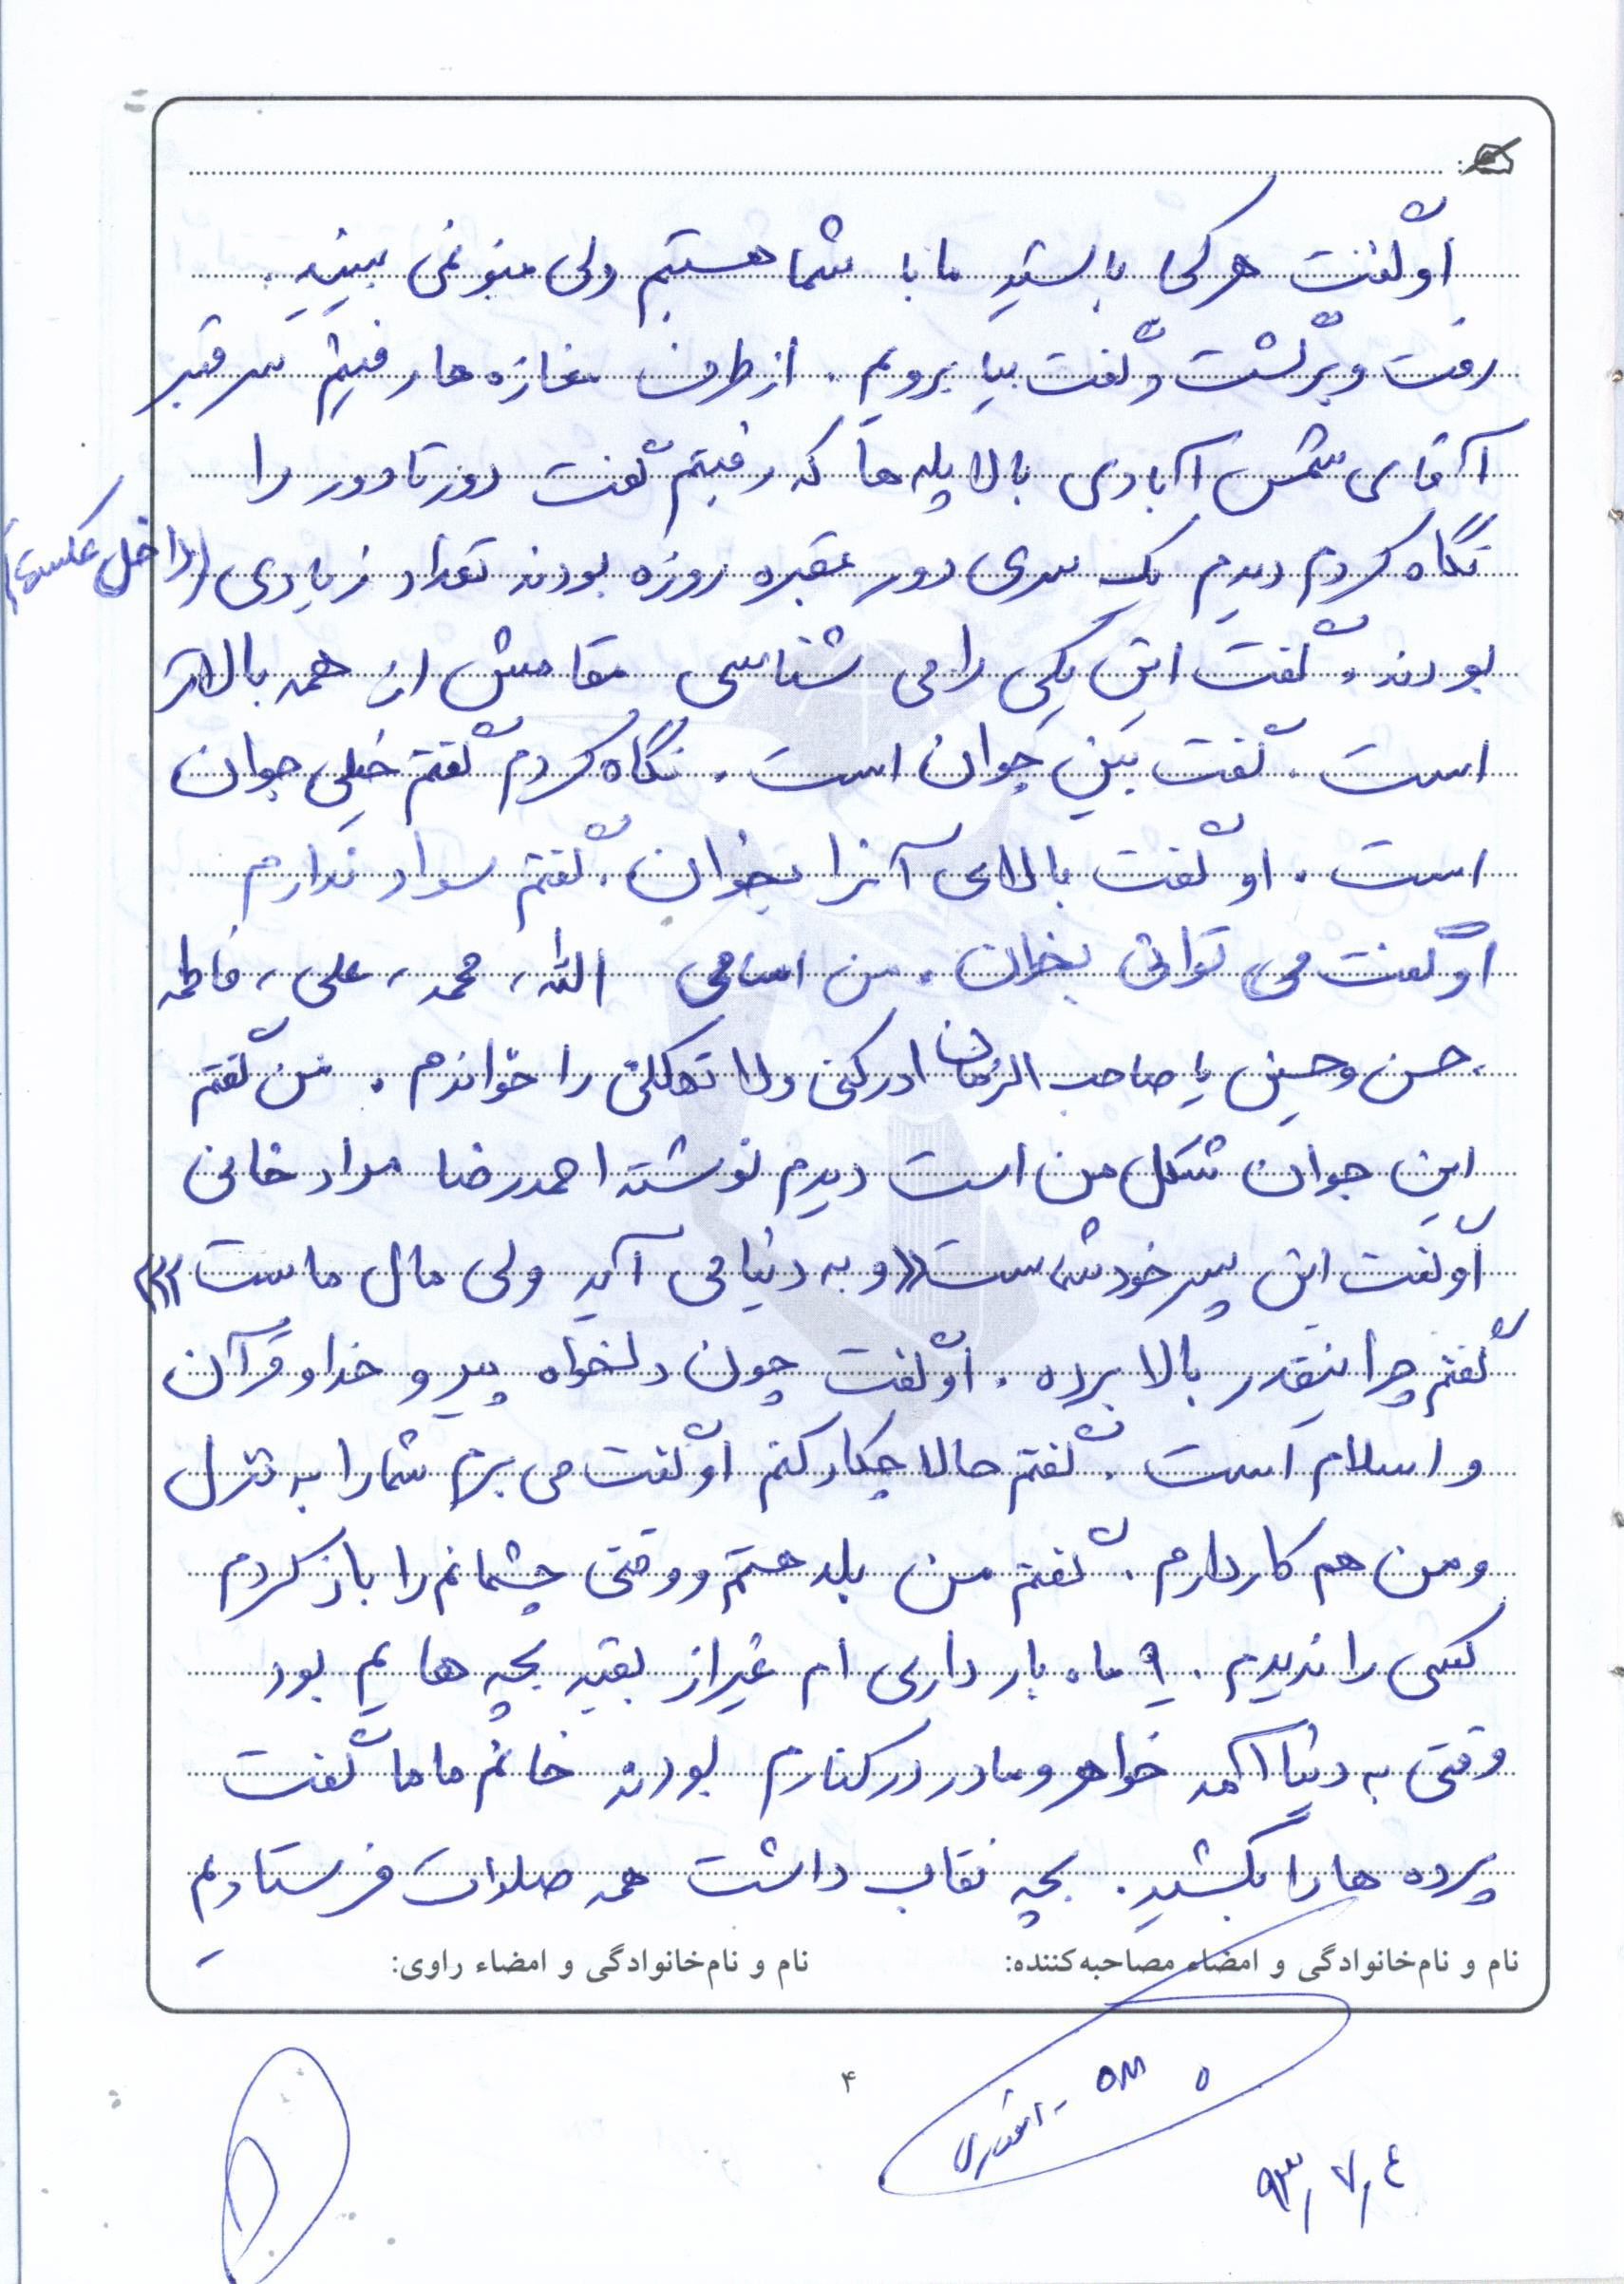 او گفت هر کجا باشید ما با شما هستیم ولی منو نمی بینید.
رفت و برگشت و گفت بیا برویم. از طرف مغازه ها رفتیم سر قبر
آقای شمس آبادی بالا پله ها که رفتیم گفت دور تا دور را
نگاه کردم دیدم یک سری دور مقبره روزه بودند تعداد زیادی (داخل عکسها)
بودند. گفت این یکی را می شناسی مقامش از همه بالاتر
است. گفت ببین جوان است. نگاه کردم گفتم خیلی جوان
است. او گفت بالای آنرا بخوان. گفتم سواد ندارم
او گفت می توانی بخوان. من اسامی الله، محمد، علی، فاطمه
، حسن و حسین یا صاحب الزمان ادرکنی ولا تهلکنی را خواندم. من گفتم
این جوان شکل من است دیدم نوشته احمدرضا مراد خانی
او گفت این پسر خود شماست «و به دنیا می آید ولی مال ماست»
گفتم چرا اینقدر بالا برده. او گفت چون دلخواه پیرو خدا و قرآن
و اسلام است. گفتم حالا چکار کنم او گفت می برم شما را به منزل
و من هم کار دارم. گفتم من بلد هستم و وقتی چشمانم را باز کردم
کسی را ندیدم. ۹ ماه بارداری ام غیر از بقیه بچه هایم بود
وقتی به دنیا آمد خواهر و مادر در کنارم بودند خانم ماما گفت
پرده ها را بکشید. بچه نقاب داشت همه صلوات فرستادیم
نام و نام‌خانوادگی و امضاء مصاحبه‌کننده: نام و نام‌خانوادگی و امضاء راوی:
۴
۹۳/۷/۴